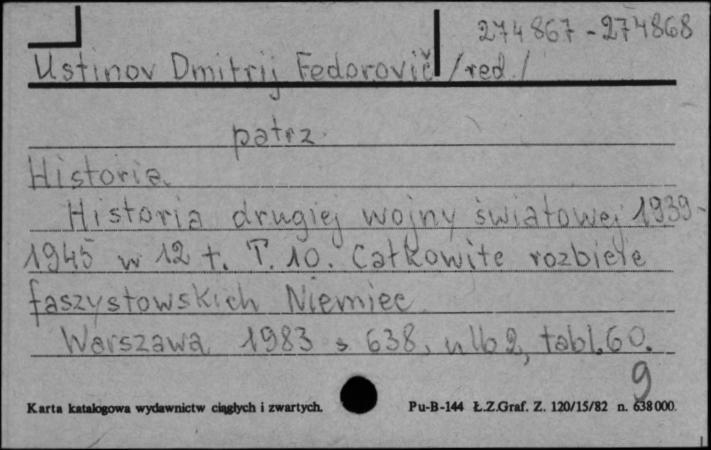 274867-274868
Ustinov Dmitrij Fedorovič /red./
patrz
Historia.
Historia drugiej wojny światowej 1939-
1945 w 12 t. T. 10. Całkowite rozbicie
faszystowskich Niemiec
Warszawa 1983 s 638, nlb 2, tabl. 60.
9
Karta katalogowa wydawnictw ciągłych i zwartych. Pu-B-144 Ł.Z.Graf. Z. 120/15/82 n. 638000.